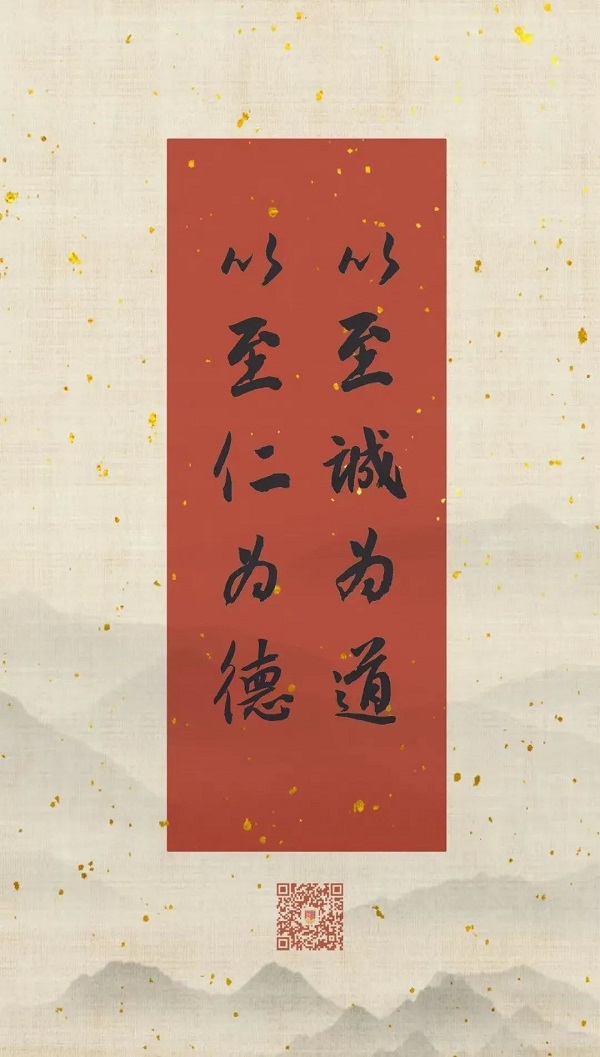 以至诚为道
以至仁为德